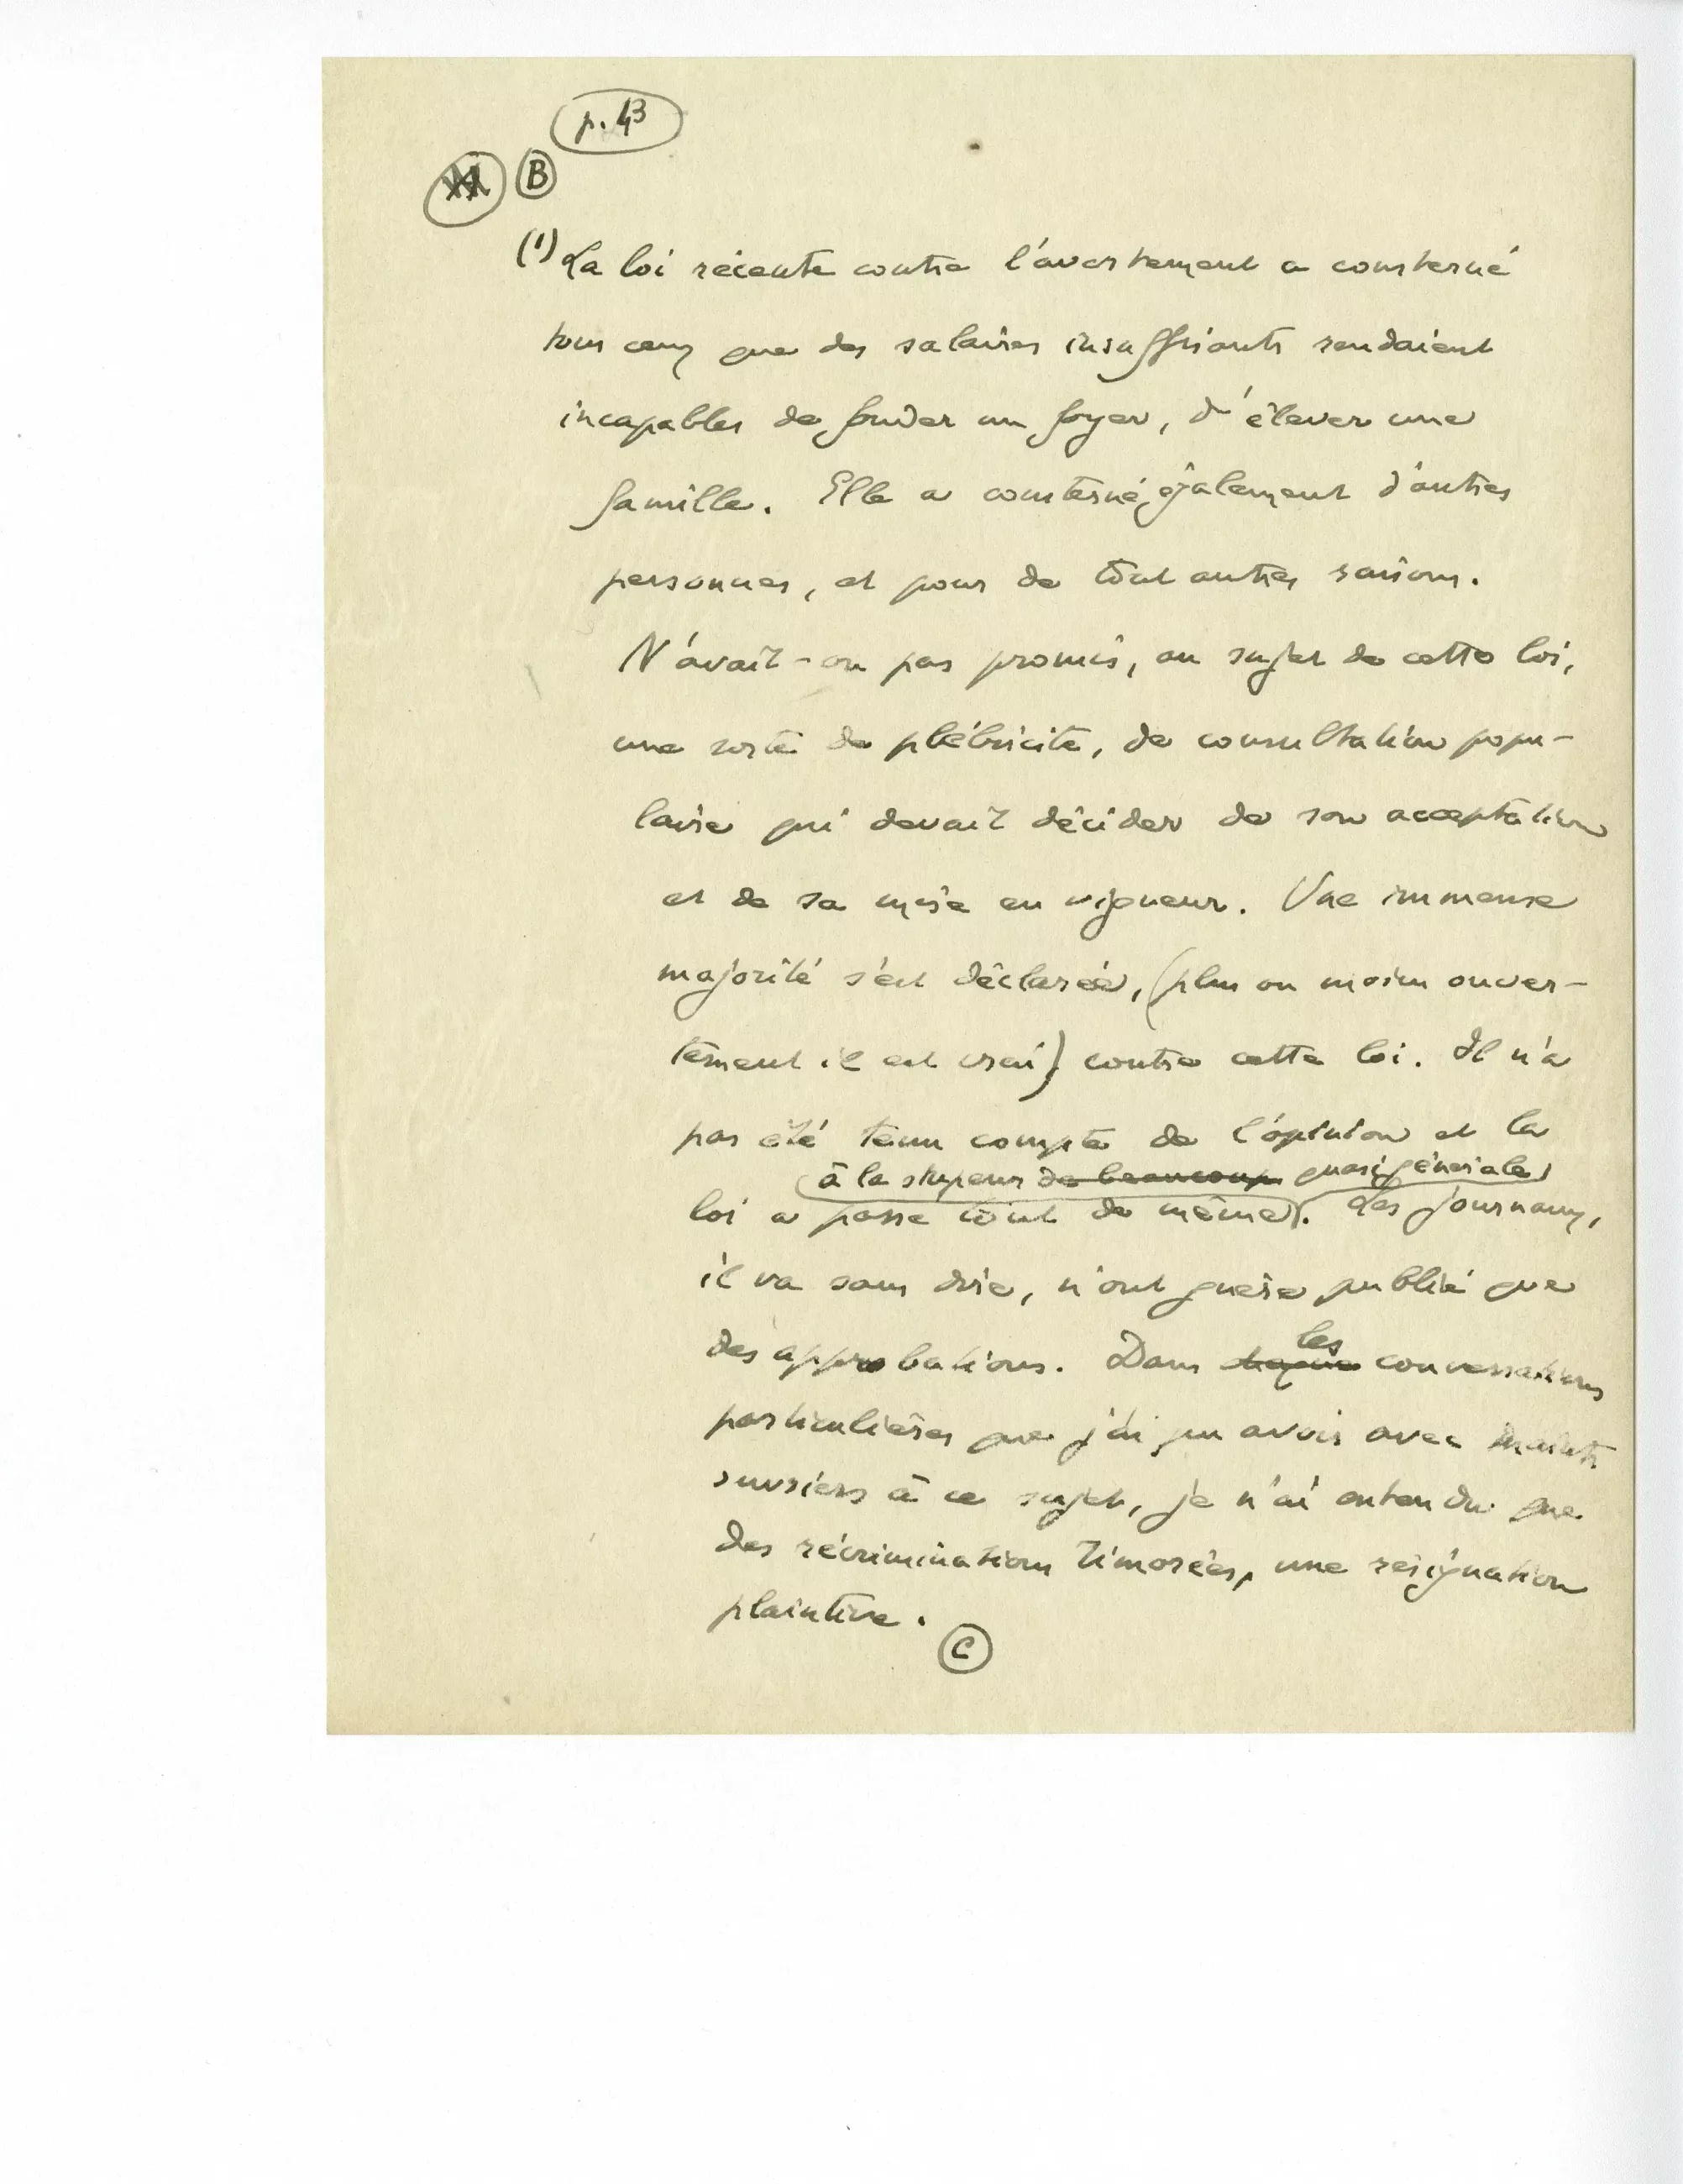 p. 43
B
(1) La loi récente contre l'avortement a consterné
tous ceux que des salaires insuffisants rendaient
incapables de fonder un foyer, d'élever une
famille. Elle a consterné également d'autres
personnes, et pour de tout autres raisons.
N'avait-on pas promis, au sujet de cette loi,
une sorte de plébiscite, de consultation popu-
laire qui devait décider de son acceptation
et de sa mise en vigueur. Une immense
majorité s'est déclarée, (plus ou moins ouver-
tement il est vrai) contre cette loi. Il n'a
pas été tenu compte de l'opinion et la
à la stupeur de beaucoup quasi générale
loi a passé tout de même. Les journaux,
il va sans dire, n'ont guère publié que
les
des approbations. Dans conversations
particulières que j'ai pu avoir avec maints
ouvriers à ce sujet, je n'ai entendu que
des récriminations timorées, une résignation
plaintive.
C